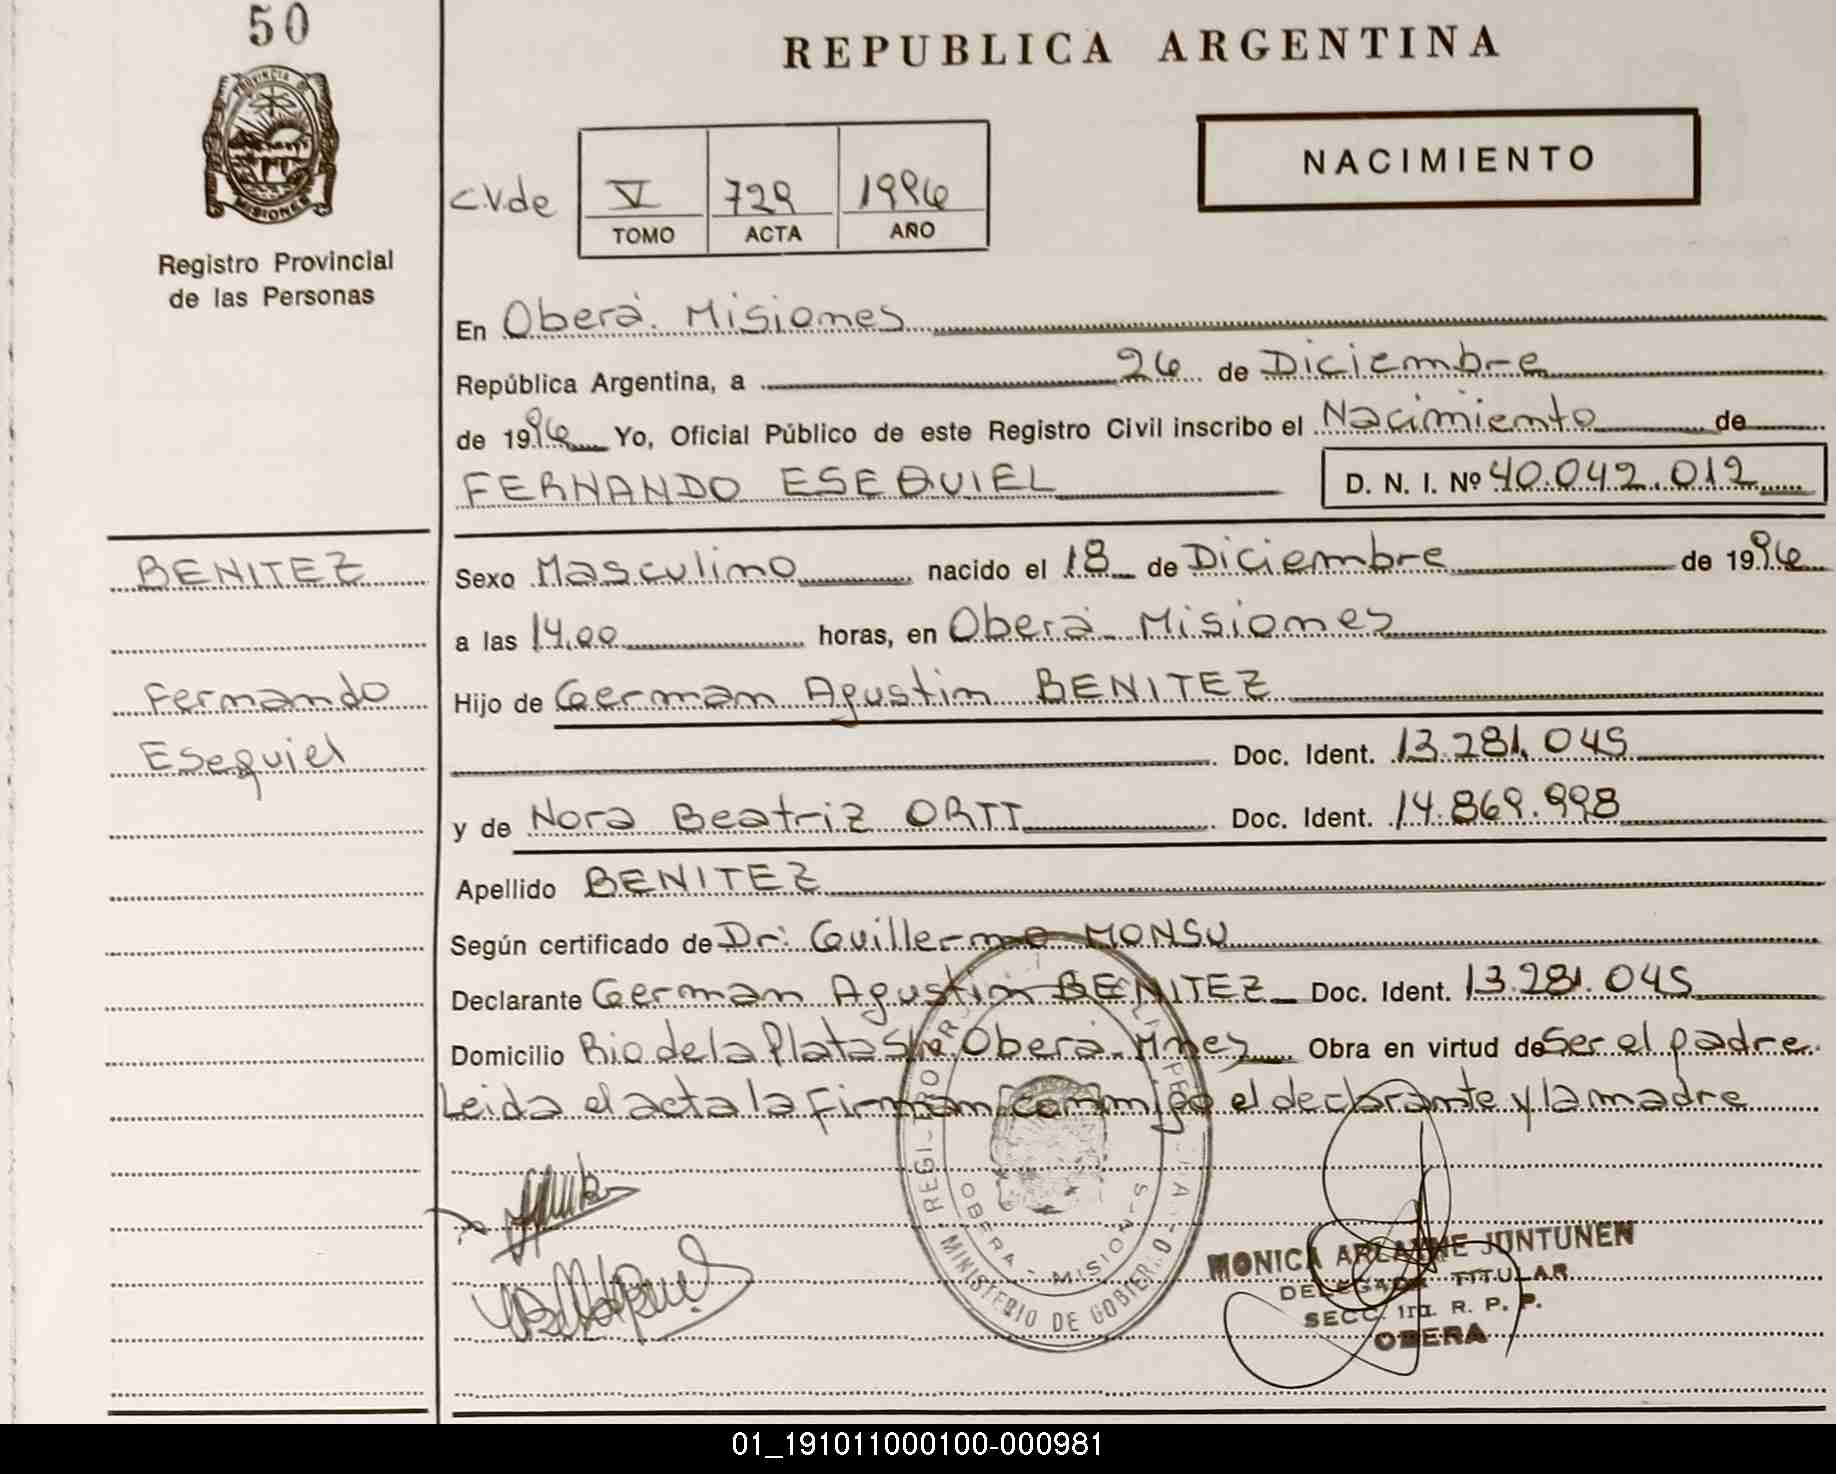 50
PROVINCIA DE
MISIONES
Registro Provincial
de las Personas
REPUBLICA ARGENTINA
C.V.de
V 729 1996
TOMO ACTA AÑO
NACIMIENTO
En Oberá. Misiones
República Argentina, a 26 de Diciembre
de 1996 Yo, Oficial Público de este Registro Civil inscribo el Nacimiento de
FERNANDO ESEQUIEL D. N. I. Nº 40.042.012
BENITEZ
Fernando
Esequiel
Sexo Masculino nacido el 18 de Diciembre de 1996
a las 14,00 horas, en Oberá. Misiones
Hijo de German Agustin BENITEZ
Doc. Ident. 13.281.045
y de Nora Beatriz ORTT Doc. Ident. 14.869.998
Apellido BENITEZ
Según certificado de Dr: Guillermo MONSU
Declarante German Agustin BENITEZ Doc. Ident. 13.281.045
Domicilio Rio de la Plata S/nº Oberá. Mnes Obra en virtud de Ser el padre.
Leida el acta la firman conmigo el declarante y la madre
OBERA - MISIONES
MINISTERIO DE GOBIERNO
MONICA ARIANNE JUNTUNEN
DELEGADA TITULAR
SECC. 1ra. R. P. P.
OBERA
01_191011000100-000981